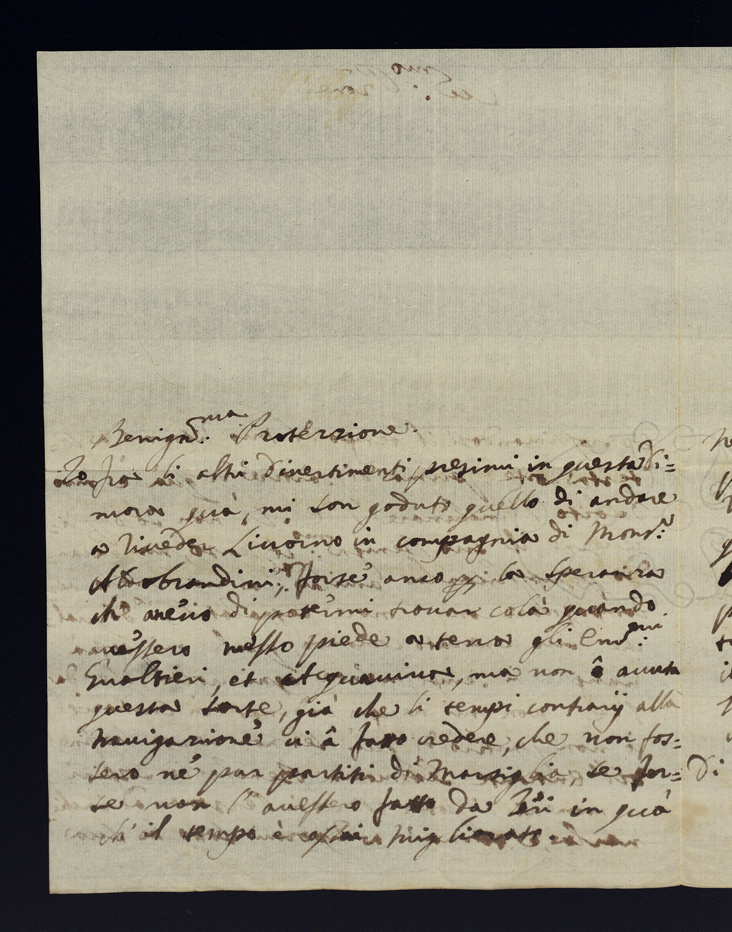 Benign.ma Protezzione.
Io fra li altri divertimenti presimi in questa di=
mora quà, mi son goduto quello di andare
a riveder Livorno in compagnia di Mons.r
Aldobrandini, forse anco la speranza
ch' avevo di potermi trovar colà quando
avessero messo piede a terra gli Em.mi
Gualtieri, et Acquaviva, ma non ô avuta
questa sorte, già che li tempi contrarij alla
navigazione ci â fatto credere, che non fos=
sero nè pur partiti di Marsiglia se for=
se non l' avessero fatto da Ieri in quà
ch' il tempo è assai migliorato